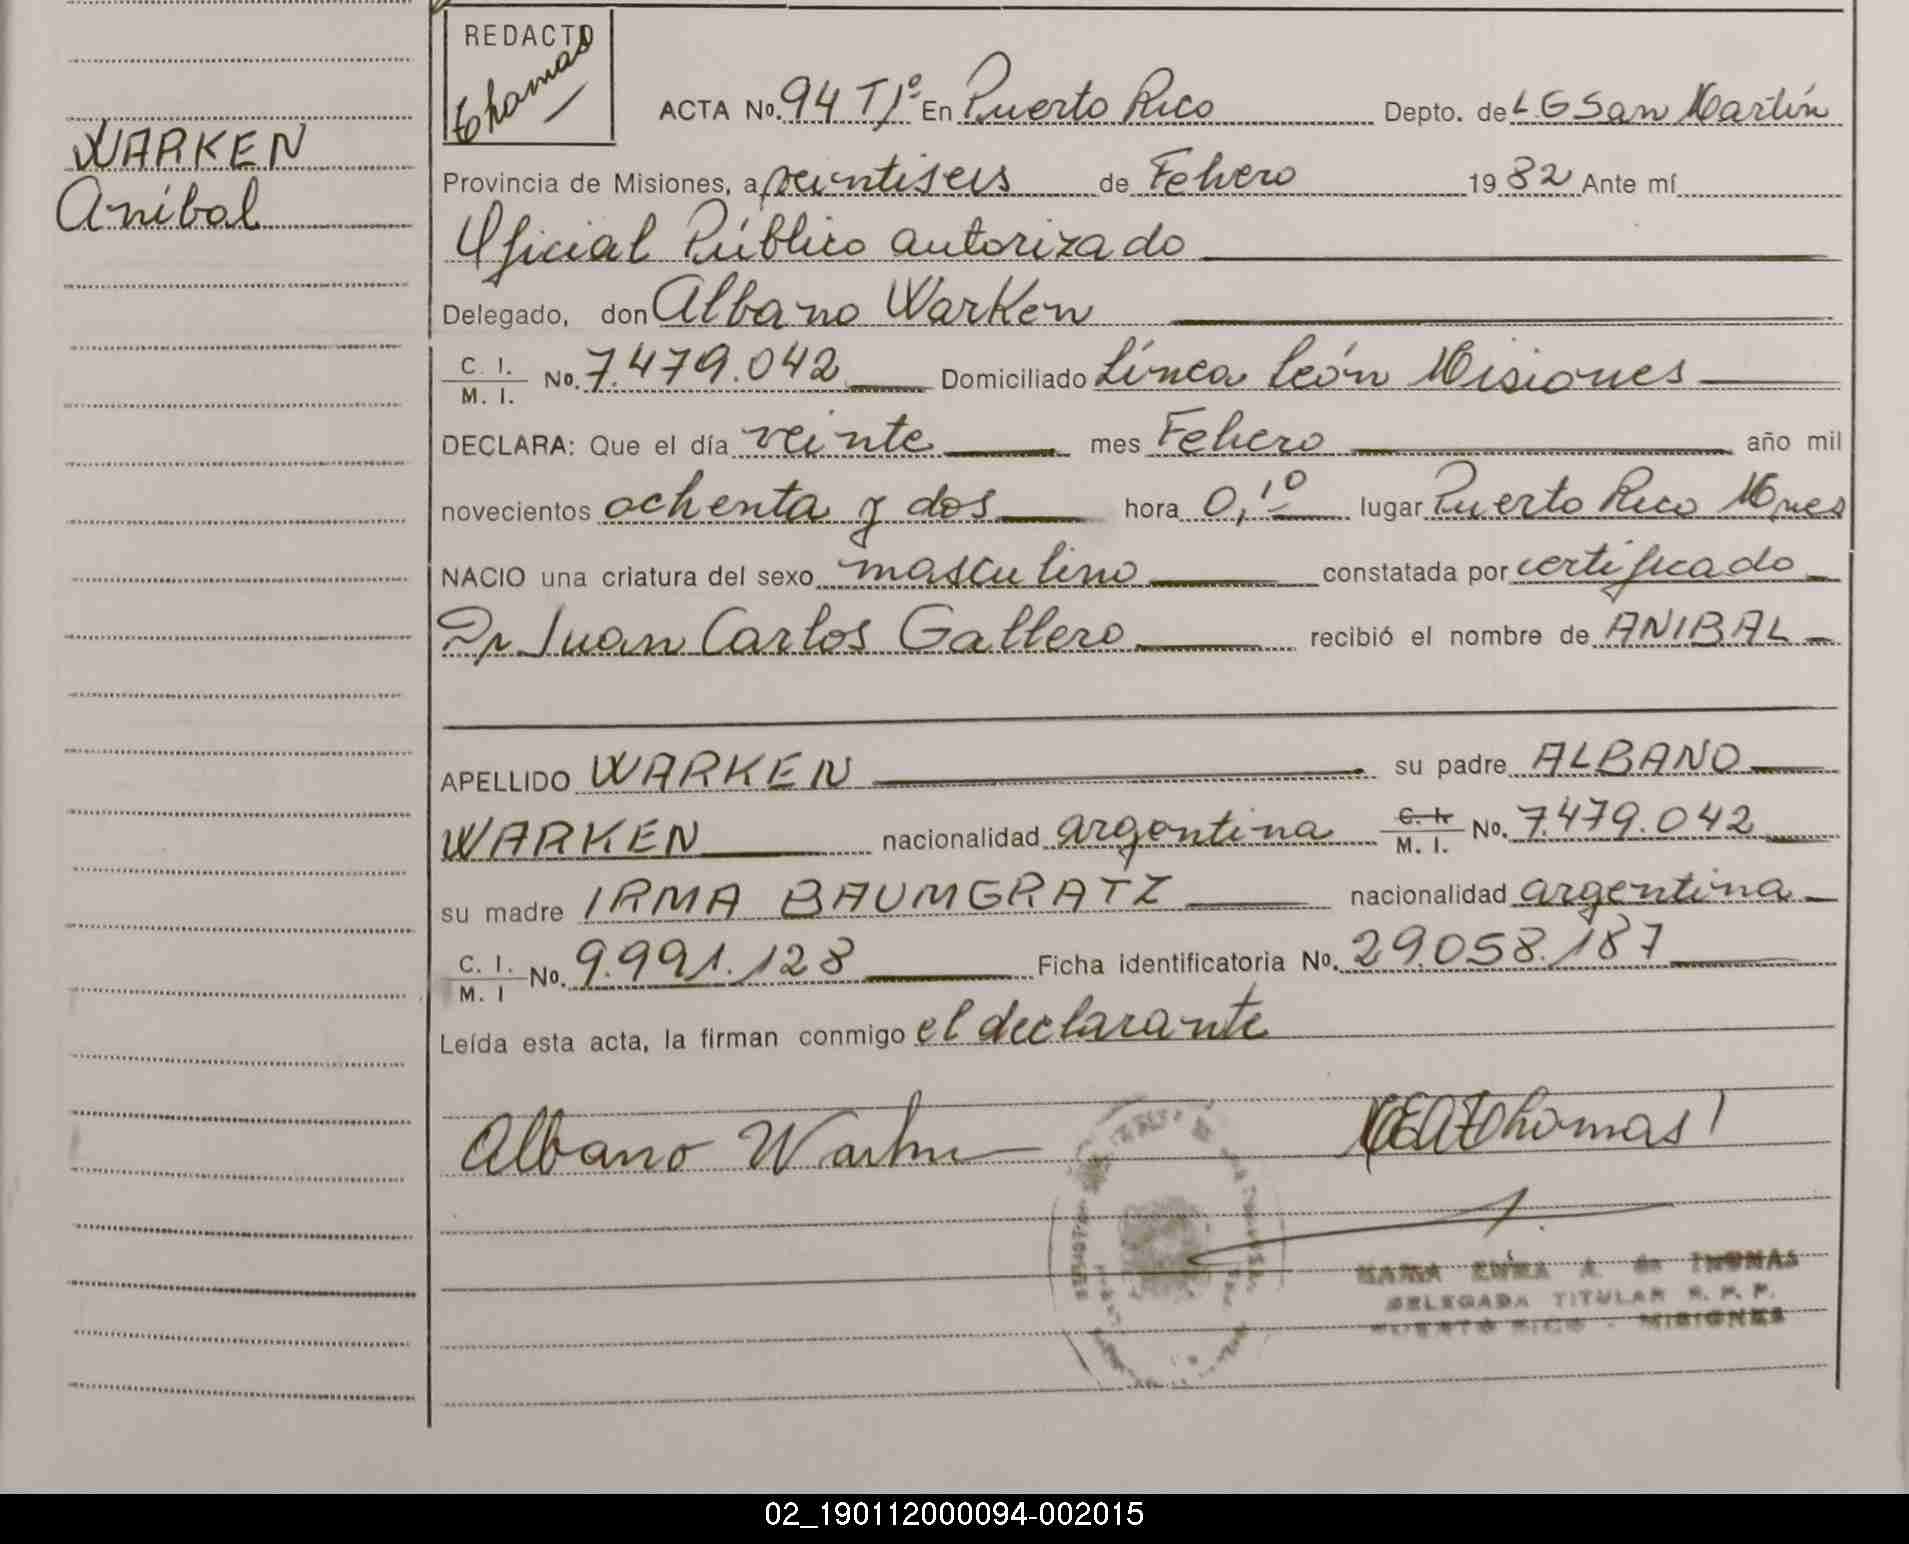 REDACTO
Thomas
ACTA No. 94 T1º En Puerto Rico Depto. de L G San Martín
WARKEN
Provincia de Misiones, a veintiseis de Febrero 1982 Ante mí
Anibal
Oficial Público autorizado
Delegado, don Albano Warken
C. I. / M. I. No. 7.479.042 Domiciliado Línea León Misiones
DECLARA: Que el día veinte mes Febrero año mil
novecientos ochenta y dos hora 0,10 lugar Puerto Rico Mnes
NACIO una criatura del sexo masculino constatada por certificado
Dr Juan Carlos Gallero recibió el nombre de ANIBAL
APELLIDO WARKEN su padre ALBANO
WARKEN nacionalidad argentina C. I. / M. I. No. 7.479.042
su madre IRMA BAUMGRATZ nacionalidad argentina
C. I. / M. I No. 9.991.128 Ficha identificatoria No. 29.058.187
Leída esta acta, la firman conmigo el declarante
Albano Warken Thomas
A. de THOMAS
DELEGADA TITULAR R. P. P.
PUERTO RICO - MISIONES
02_190112000094-002015